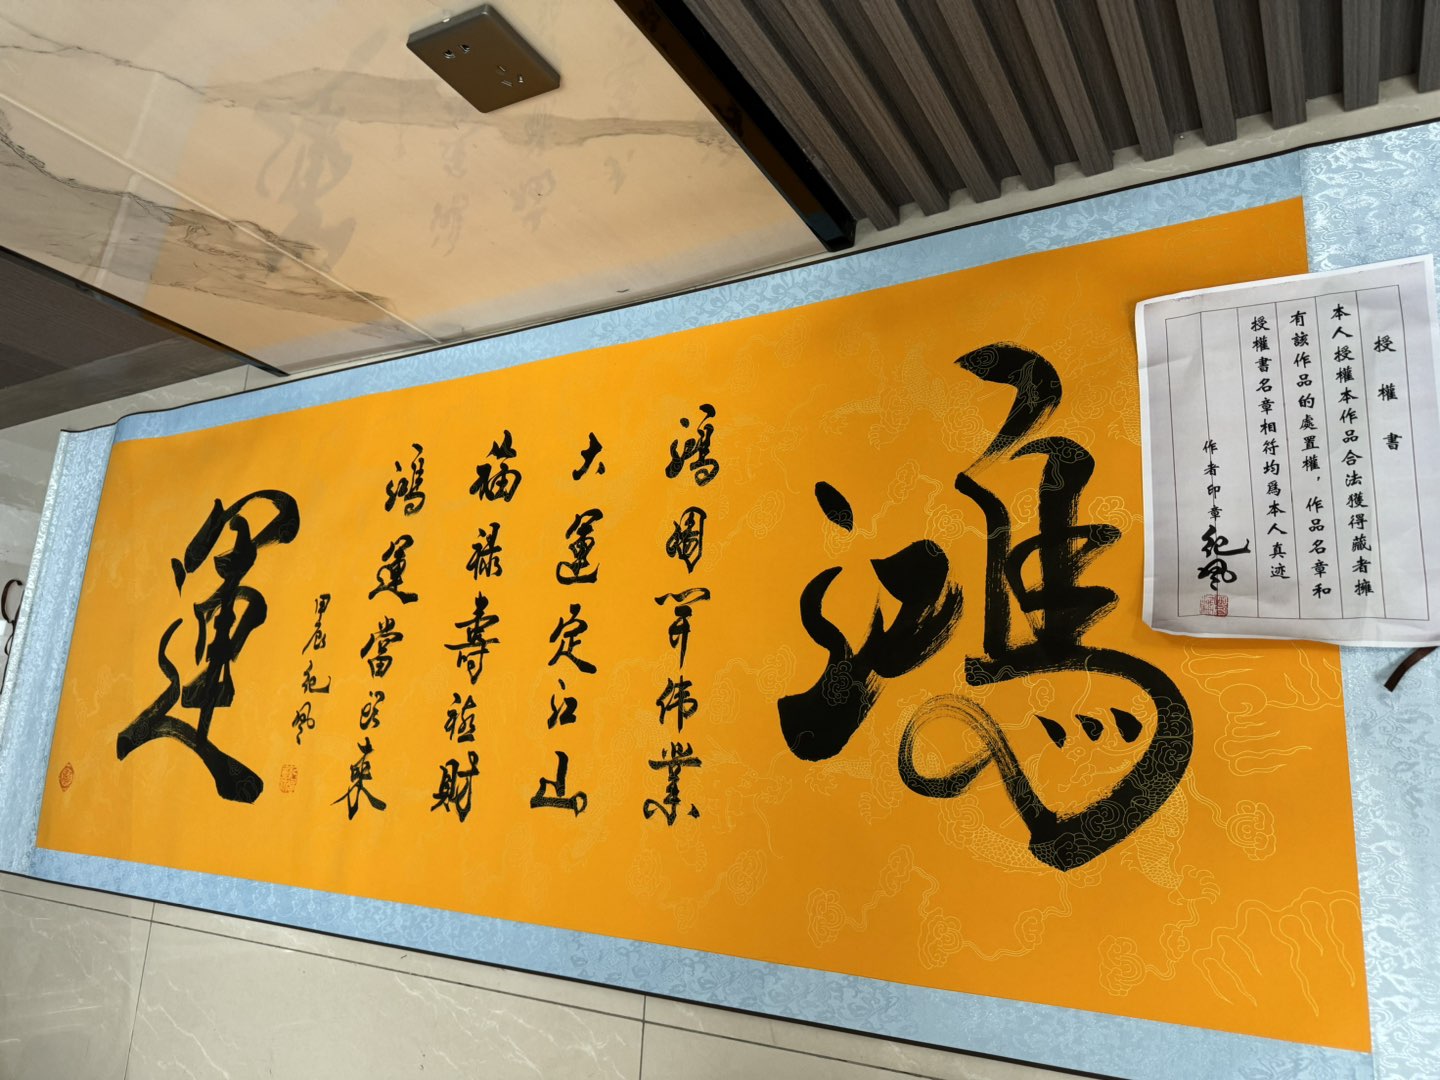 鴻
鴻圖開伟業
大運定江山
福禄壽禧財
鴻運當头來
甲辰纪风
運
授權書
本人授權本作品合法獲得藏者擁
有該作品的處置權，作品名章和
授權書名章相符均爲本人真迹
作者印章 纪风